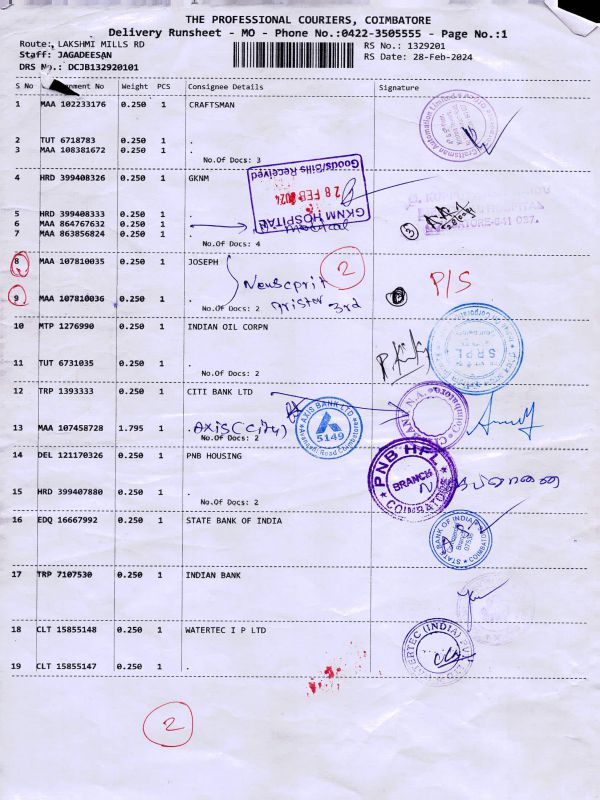 THE PROFESSIONAL COURIERS, COIMBATORE
Delivery Runsheet - MO - Phone No.:0422-3505555 - Page No.:1
Route: LAKSHMI MILLS RD RS No.: 1329201
Staff: JAGADEESAN RS Date: 28-Feb-2024
DRS No.: DCJB132920101
S No No Weight PCS Consignee Details Signature
1 MAA 102233176 0.250 1 CRAFTSMAN
2 TUT 6718783 0.250 1 .
3 MAA 108381672 0.250 1 .
No.Of Docs: 3
4 HRD 399408326 0.250 1 GKNM
GKNM HOSPITAL
28 FEB 2024
Goods/Bills Received
5 HRD 399408333 0.250 1 .
6 MAA 864767632 0.250 1 .
7 MAA 863856824 0.250 1 .
No.Of Docs: 4
3
8 MAA 107810035 0.250 1 JOSEPH
2
P/S
9 MAA 107810036 0.250 1 . 3rd
No.Of Docs: 2
10 MTP 1276990 0.250 1 INDIAN OIL CORPN
SRPL
11 TUT 6731035 0.250 1 .
No.Of Docs: 2
12 TRP 1393333 0.250 1 CITI BANK LTD
AXIS BANK LTD
5149
13 MAA 107458728 1.795 1 . AXIS (City)
No.Of Docs: 2
14 DEL 121170326 0.250 1 PNB HOUSING
PNB HFL
BRANCH
COIMBATORE
15 HRD 399407880 0.250 1 .
No.Of Docs: 2
16 EDQ 16667992 0.250 1 STATE BANK OF INDIA
STATE BANK OF INDIA
COIMBATORE
17 TRP 7107530 0.250 1 INDIAN BANK
18 CLT 15855148 0.250 1 WATERTEC I P LTD
WATERTEC (INDIA)
19 CLT 15855147 0.250 1 .
2